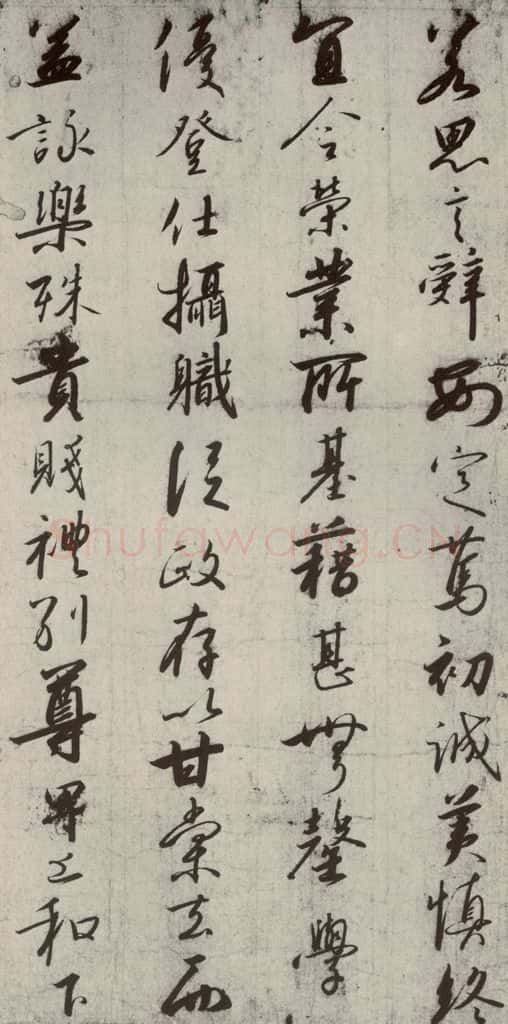 若思言辭安定篤初誠美慎終
宜令榮業所基藉甚無竟學
優登仕攝職從政存以甘棠去而
益詠樂殊貴賤禮別尊卑上和下
Shufawang.CN